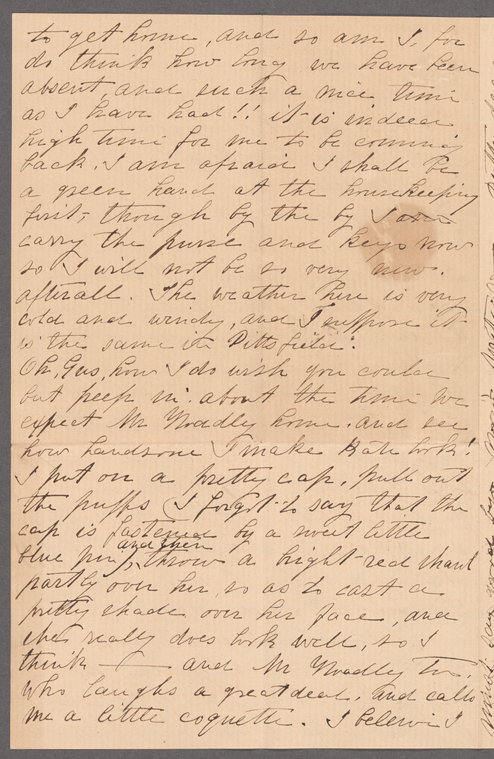 to get home, and so am I, for
do think how long we have been
absent, and such a nice time
as I have had!! it is indeed
high time for me to be coming
back. I am afraid I shall be
a green hand at the housekeeping
first, though by the by I
carry the purse and keys now
so I will not be so very new.
afterall. The weather here is very
cold and windy, and I suppose it
is the same in Pittsfield.
Oh, Gus, how I do wish you could
but peep in about the time we
expect Mr Noadly home. and see
how handsome I make Kate look!
I put on a pretty cap, pull out
the puffs (I forgot to say that the
cap is fastened by a sweet little
blue pin), and then throw a bright-red shawl
partly over her, so as to cast a
pretty shade over her face, and
she really does look well, so I
think — and Mr Noadly too,
who laughs a great deal, and calls
me a little coquette. I beleive I